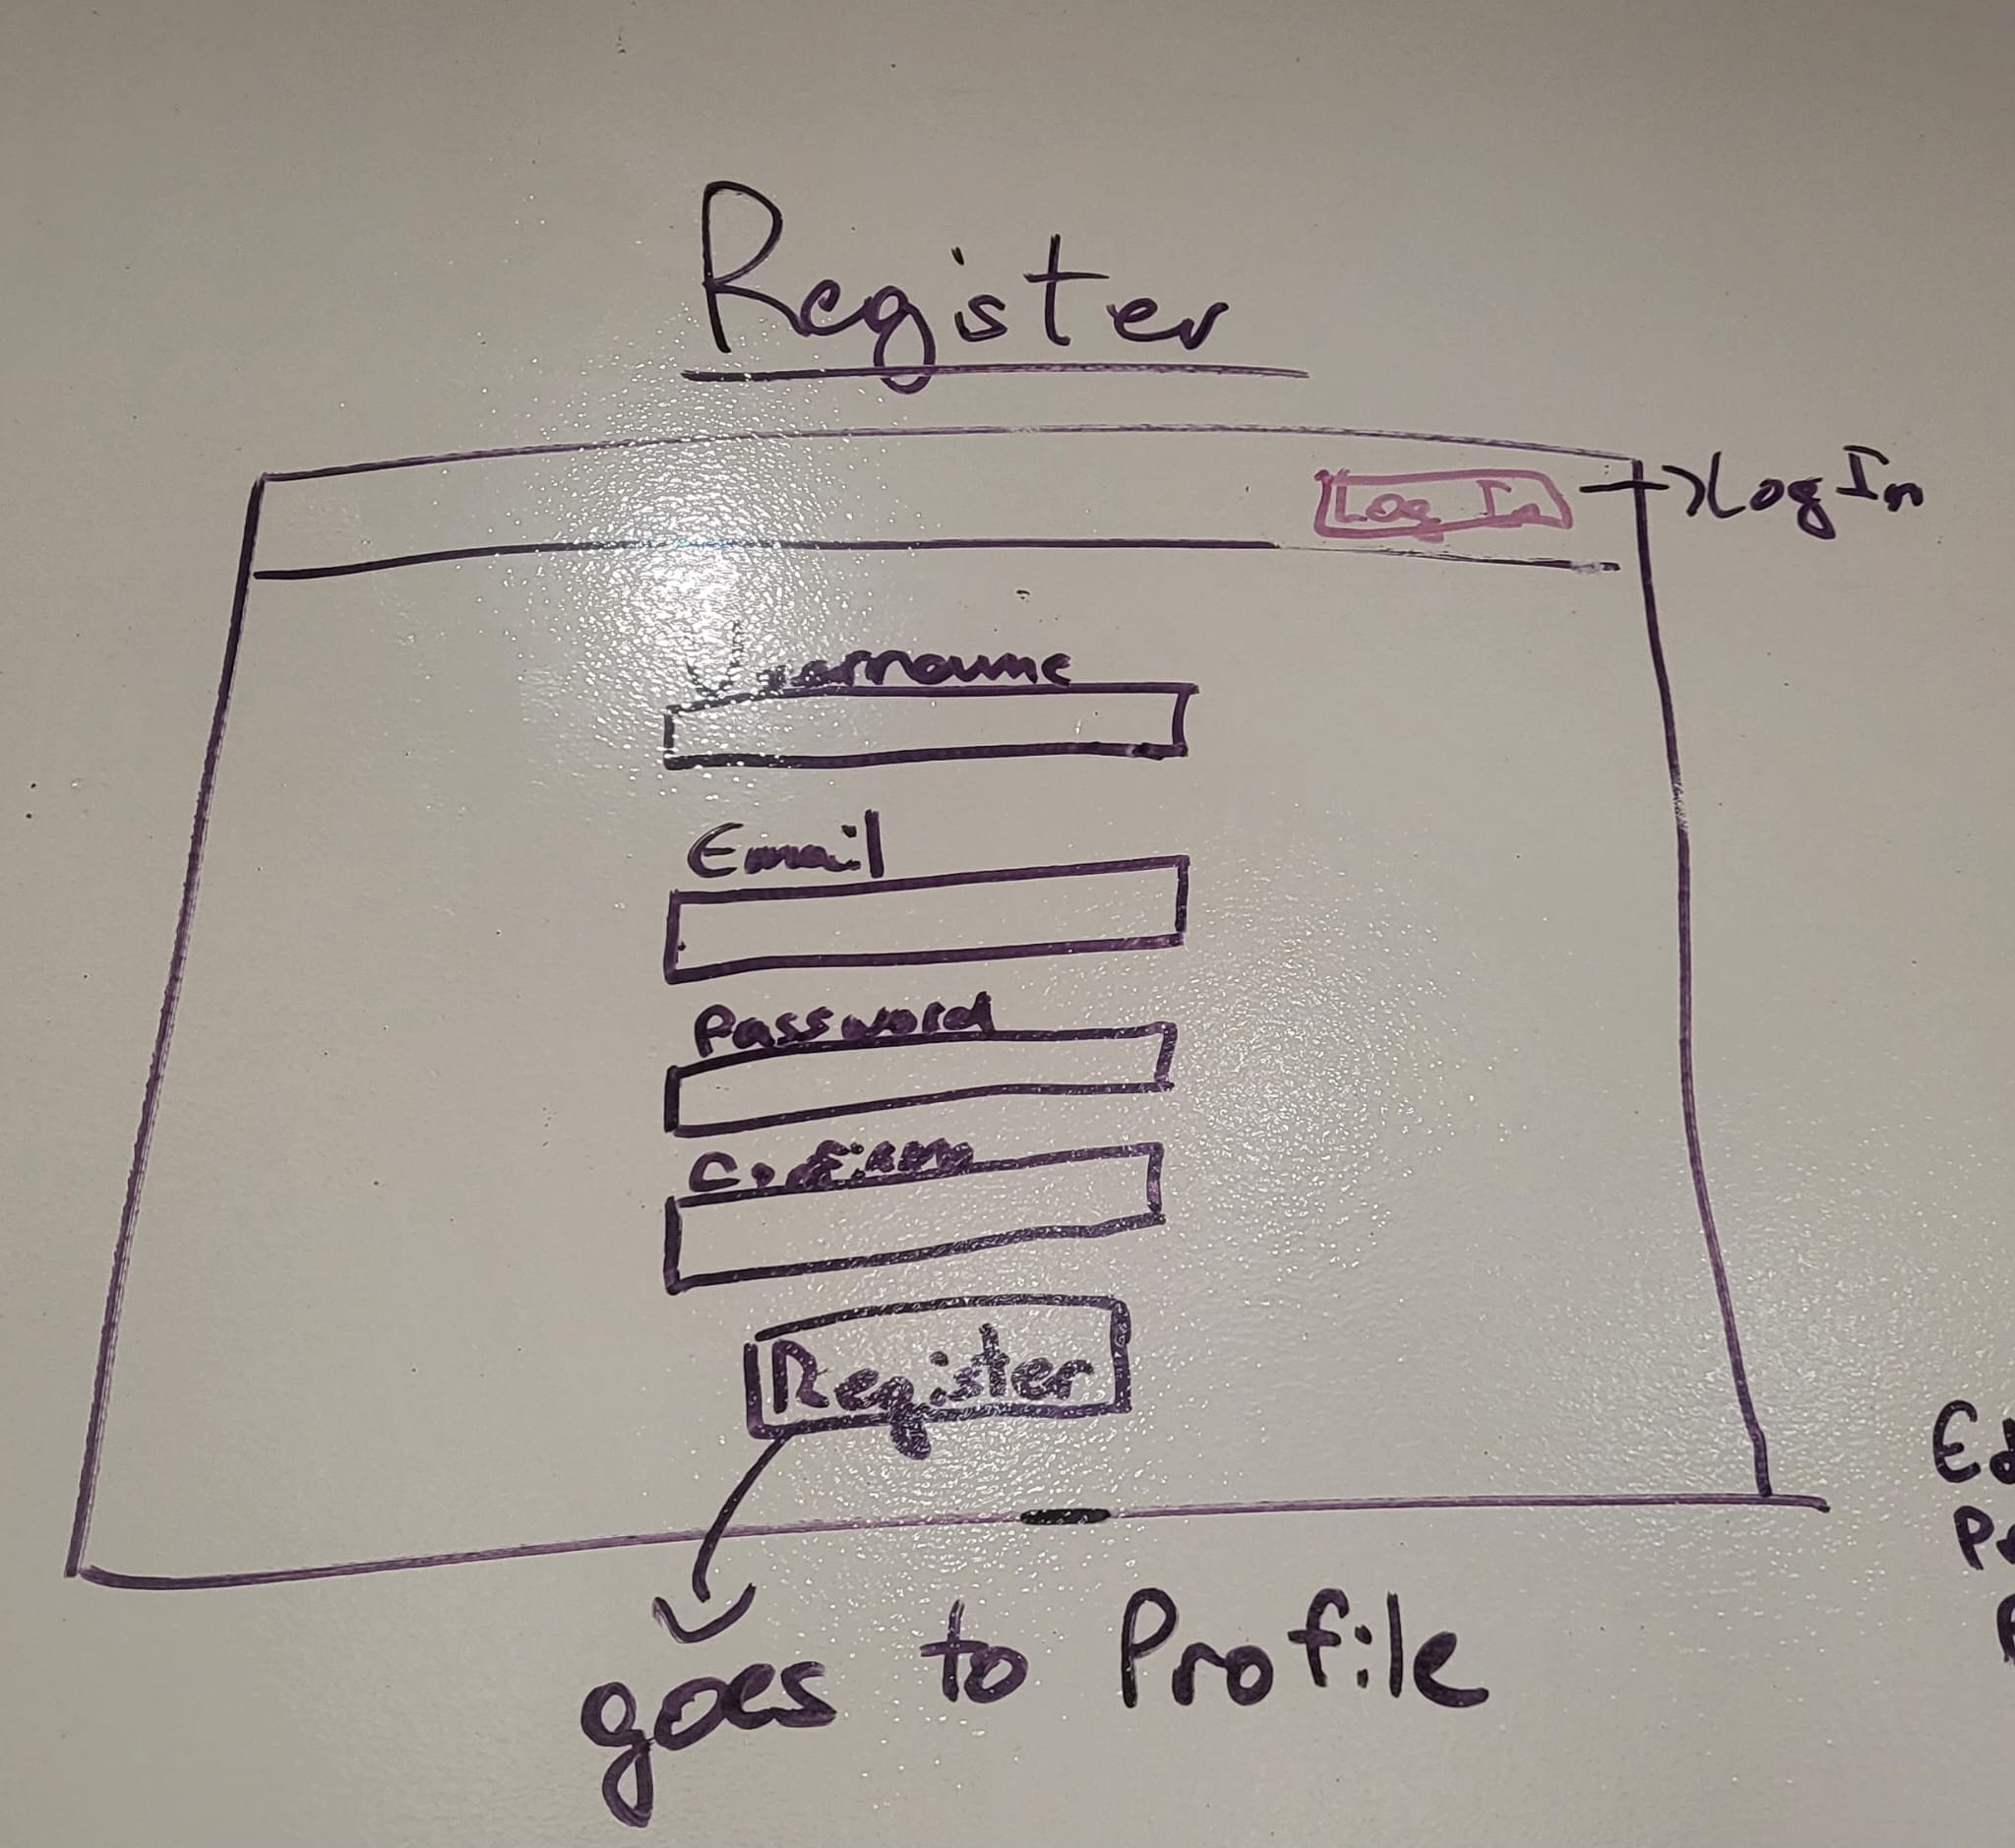 Register
Log In
Log In
Username
Email
Password
Register
goes to Profile